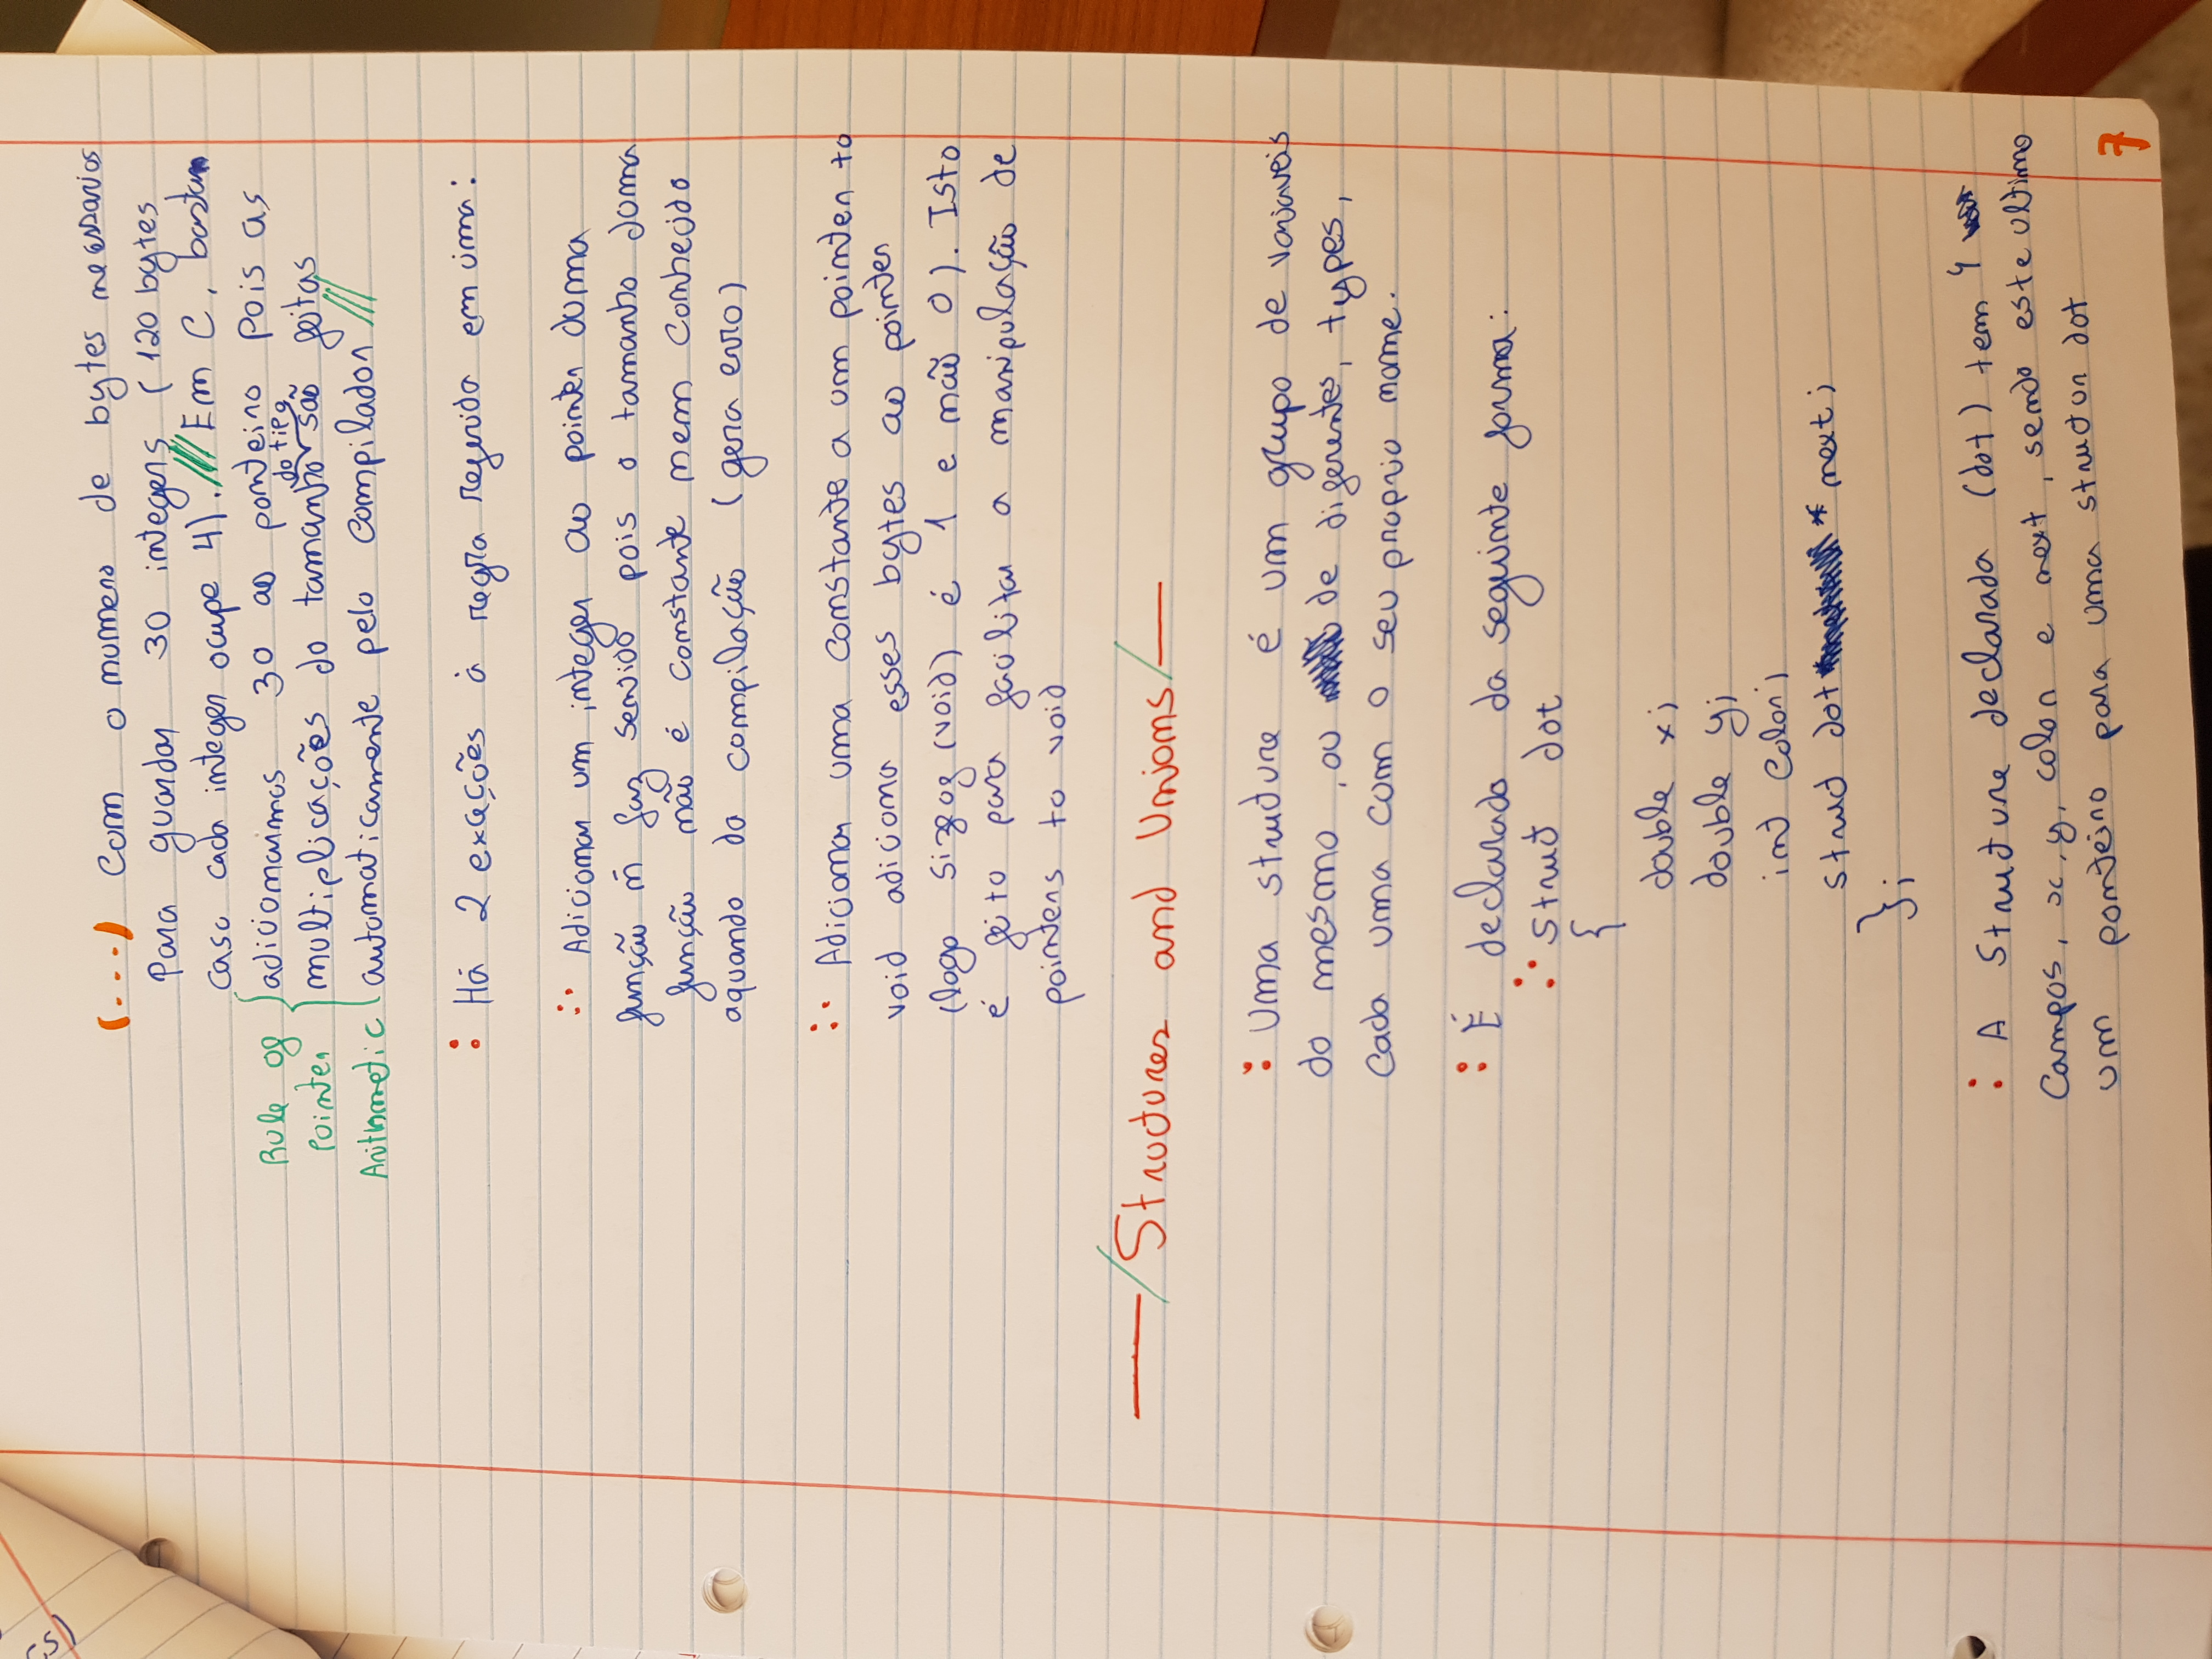 (...) Com o numero de bytes necessarios
para guardar 30 integers (120 bytes
caso cada integer ocupe 4). /// Em C, bastam
adicionarmos 30 ao ponteiro pois as
multiplicações do tamanho do tipo são feitas
automaticamente pelo compilador ///
Rule of
Pointer
Arithmetic
: Há 2 exceções à regra referida em cima:
∴ Adicionar um integer ao pointer duma
função ñ faz sentido pois o tamanho duma
função não é constante nem conhecido
aquando da compilação (gera erro)
∴ Adicionar uma constante a um pointer to
void adiciona esses bytes ao pointer
(logo sizeof (void) é 1 e não 0). Isto
é feito para facilitar a manipulação de
pointers to void
—/Structures and Unions/—
: Uma structure é um grupo de variaveis
do mesmo, ou de diferentes, types,
cada uma com o seu proprio nome.
: É declarado da seguinte forma:
∴ struct dot
{
double x;
double y;
int color;
struct dot * next;
};
: A structure declarada (dot) tem 4
campos, x, y, color e next, sendo este ultimo
um ponteiro para uma structur dot
7